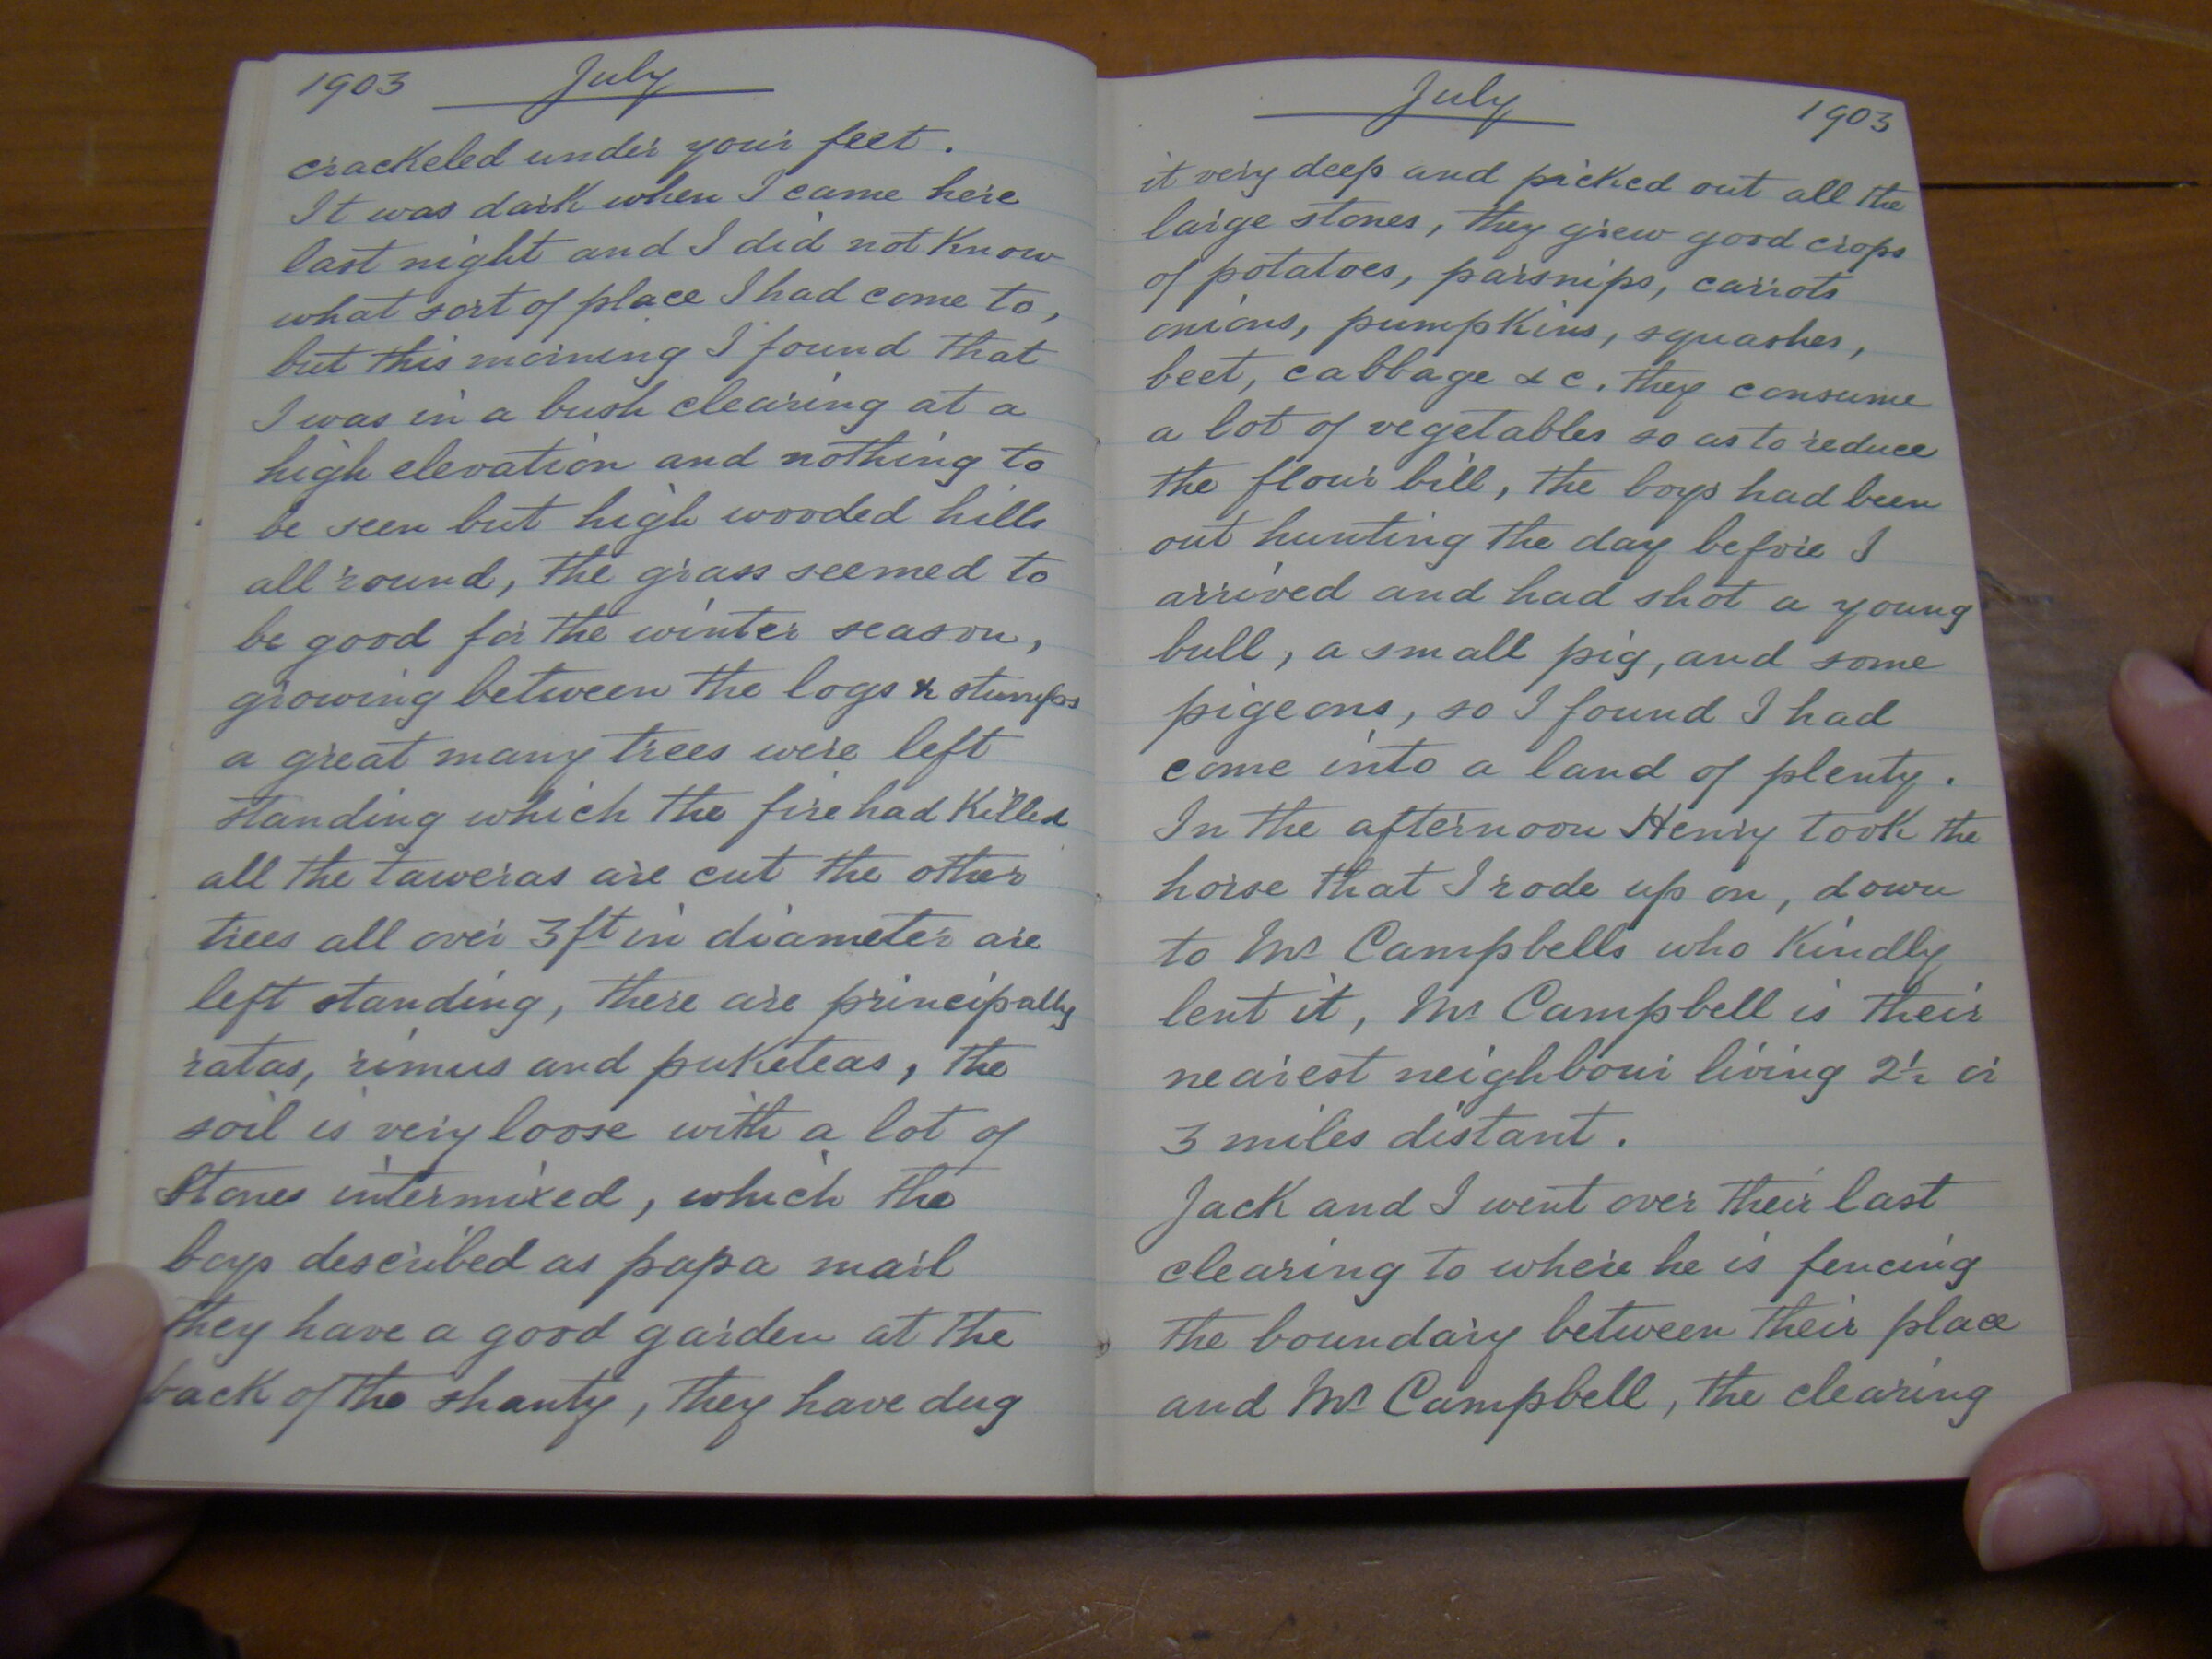 1903 July
crackeled under your feet.
It was dark when I came here
last night and I did not know
what sort of place I had come to,
but this morning I found that
I was in a bush clearing at a
high elevation and nothing to
be seen but high wooded hills
all round, the grass seemed to
be good for the winter season,
growing between the logs & stumps
a great many trees were left
standing which the fire had killed
all the taweras are cut the other
trees all over 3 ft in diameter are
left standing, there are principally
ratas, rimus and puketeas, the
soil is very loose with a lot of
stones intermixed, which the
boys described as papa marl
they have a good garden at the
back of the shanty, they have dug
July 1903
it very deep and picked out all the
large stones, they grew good crops
of potatoes, parsnips, carrots
onions, pumpkins, squashes,
beet, cabbage &c. they consume
a lot of vegetables so as to reduce
the flour bill, the boys had been
out hunting the day before I
arrived and had shot a young
bull, a small pig, and some
pigeons, so I found I had
come into a land of plenty.
In the afternoon Henry took the
horse that I rode up on, down
to Mr Campbells who kindly
lent it, Mr Campbell is their
nearest neighbour living 2½ or
3 miles distant.
Jack and I went over their last
clearing to where he is fencing
the boundary between their place
and Mr Campbell, the clearing